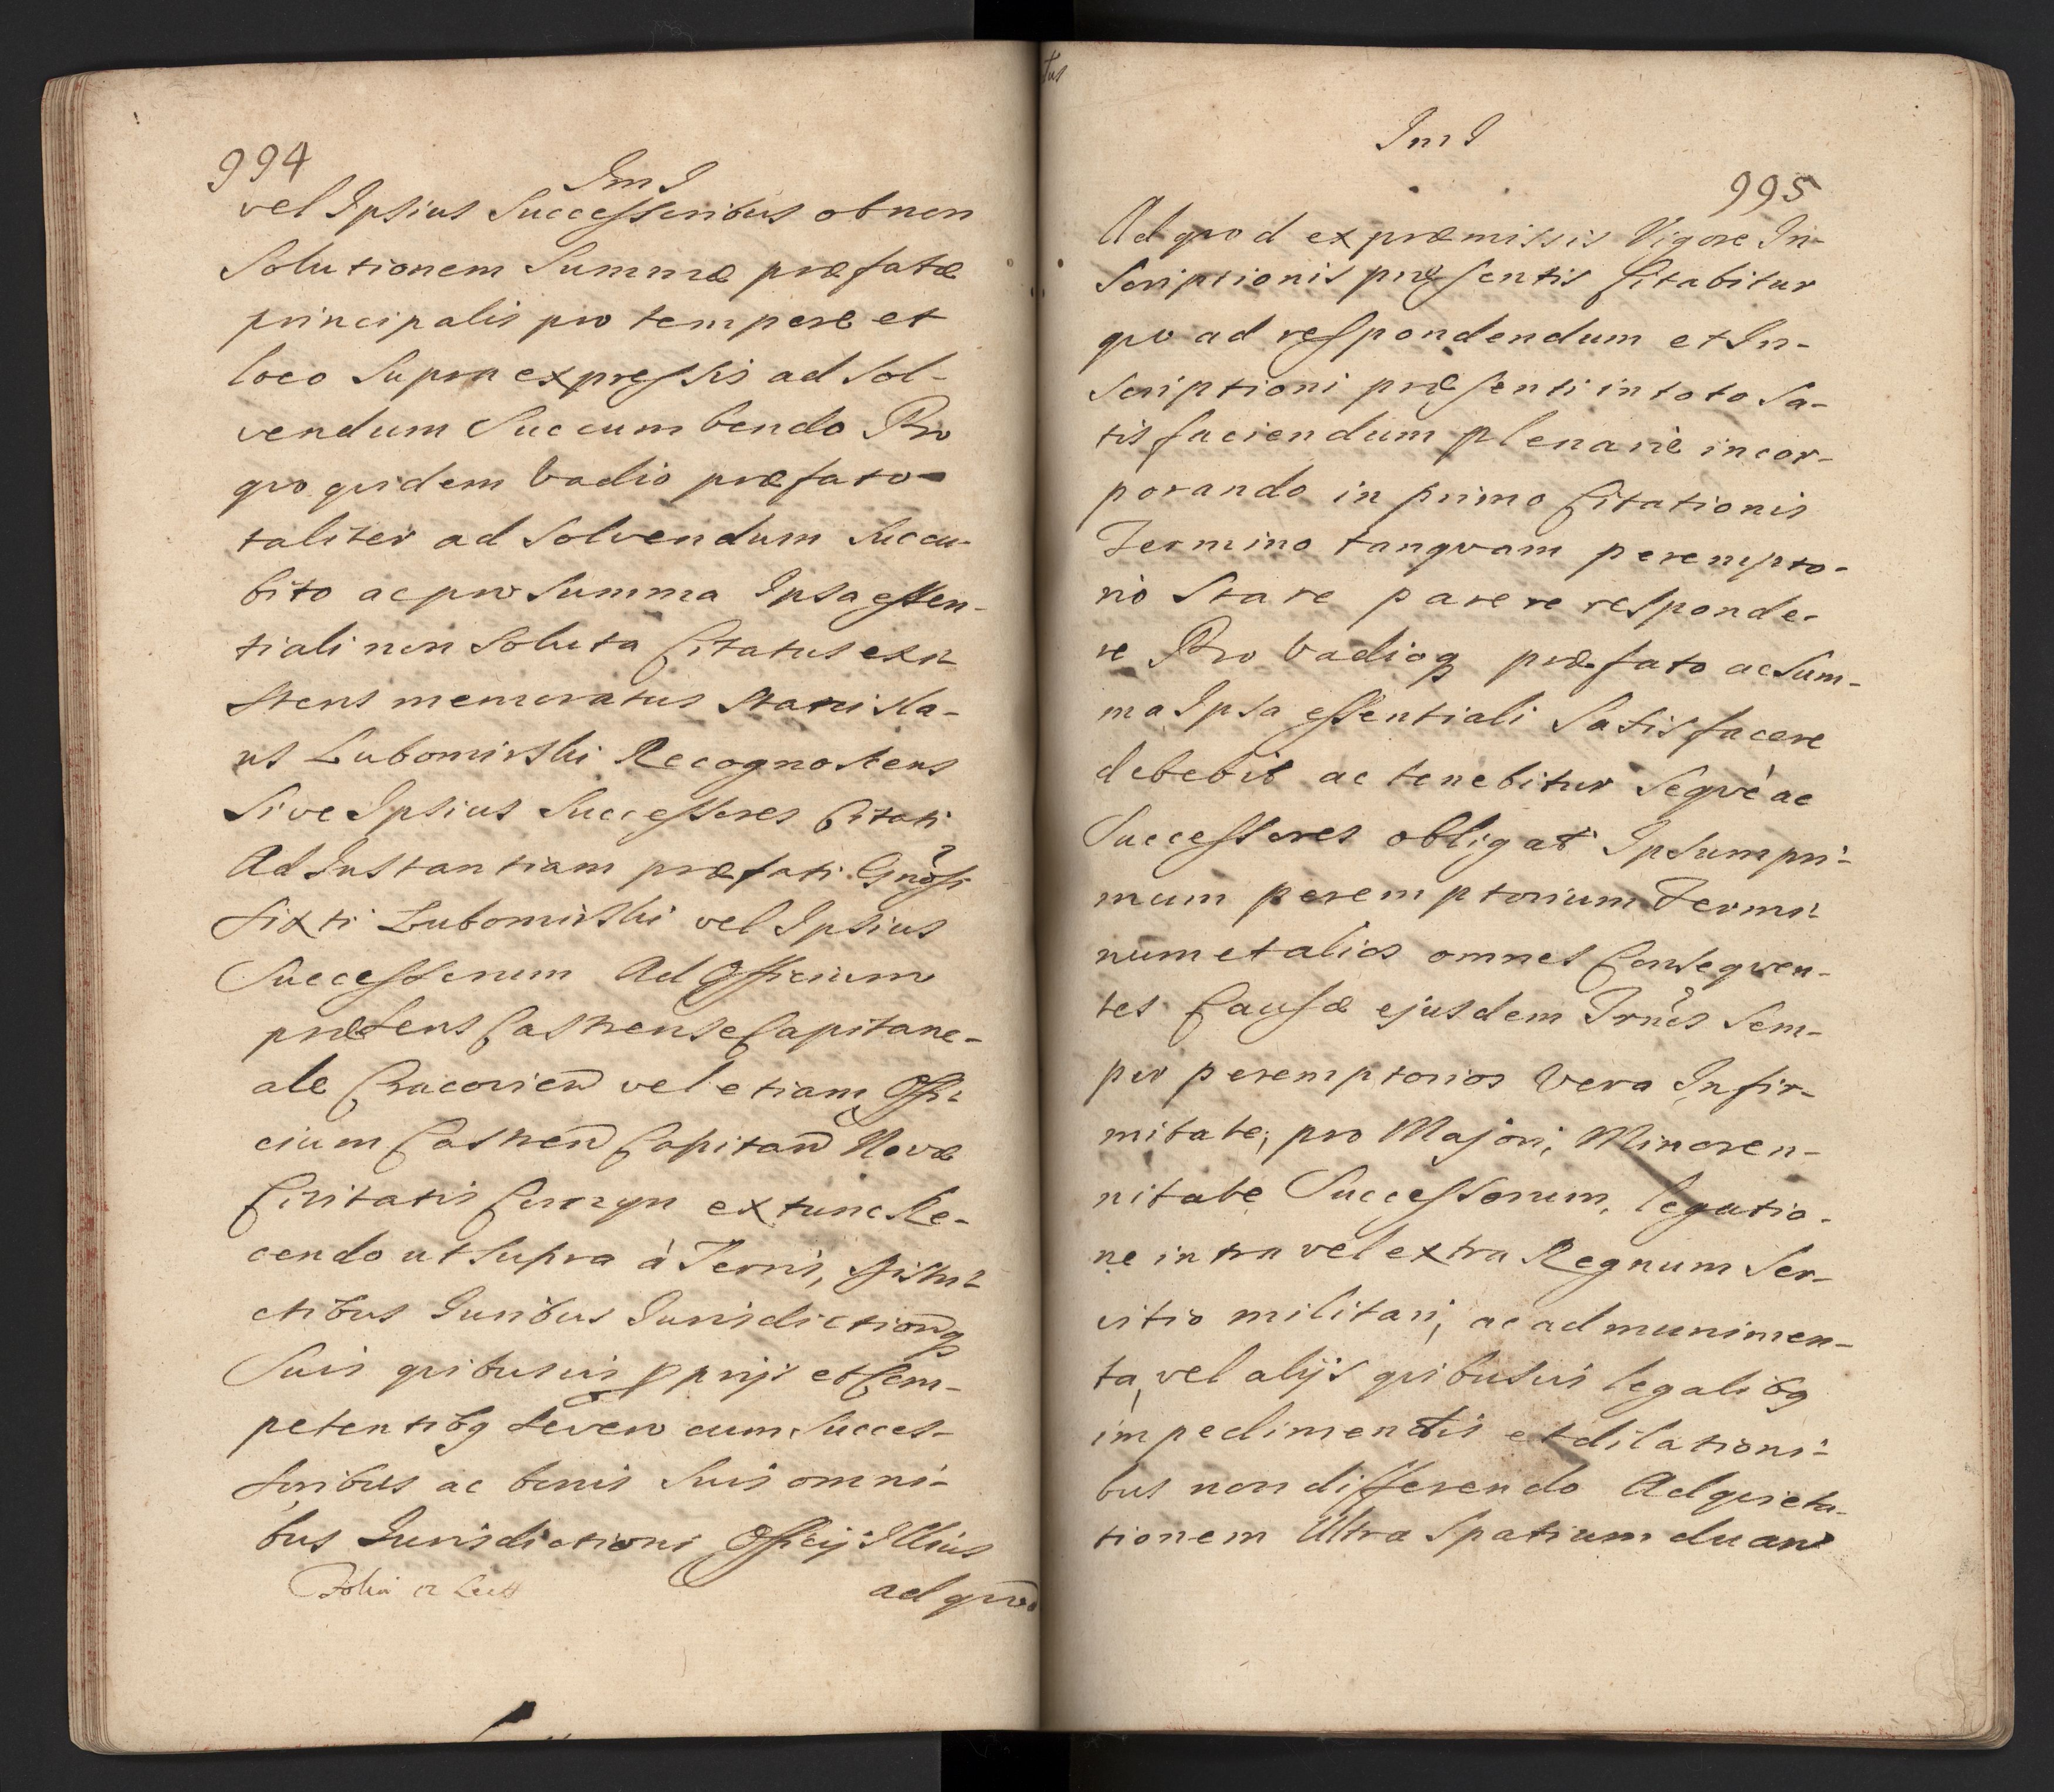 994
ImI
vel Ipsius Successoribus ob non
Solutionem Summæ præfatæ
principalis pro tempore et
loco Supra expressis ad Sol-
vendum Succumbendo Pro
quo quidem Vadio præfato
taliter ad Solvendum Succu-
bito ac pro Summa Ipsa essen-
tiali non Soluta Citatus exi-
stens memoratus Stanisla-
us Lubomirski Recognoscens
Sive Ipsius Successores Citati
Ad Instantiam præfati Gnosi
Sixti Lubomirski vel Ipsius
Successorum Ad Officium
præsens Castrense Capitane-
ale Cracovien vel etiam Offi-
cium Castren Capitan Novæ
Civitatis Corczyn extunc Re-
cendo ut Supra à Terris, Distri-
ctibus Iuribus Iurisdictionq
Suis quibusvis pprijs et Com-
petentibq seven cum Succes-
soribus ac bonis Suis omni-
bus Iurisdictioni Officij Illius
ad quod
tus
ImI
995
Ad quod ex præmissis Vigore In-
scriptionis præsentis Citabitur
quo ad respondendum et In-
scriptioni præsenti in toto Sa-
tisfaciendum plenariè incor-
porando in primo Citationis
Termino tanquam perempto-
riò Stare parere responde-
re Pro Vadioq præfato ac Sum-
ma Ipsa essentiali Satisfacere
debebit ac tenebitur Sequè ac
Successores obligat Ipsum pri-
mum peremptorium Termi-
num et alios omnes Consequen-
tes Causæ ejusdem Trnos Sem-
per peremptorios Vera Infir-
mitate, pro Majori, Minoren-
nitate Successorum, legatio-
ne intra vel extra Regnum Ser-
vitio militari, ac ad munimen-
ta, vel alijs quibusvis legalibq
impedimentis et dilationi-
bus non differendo Ad quieta-
tionem Ultra Spatium duar